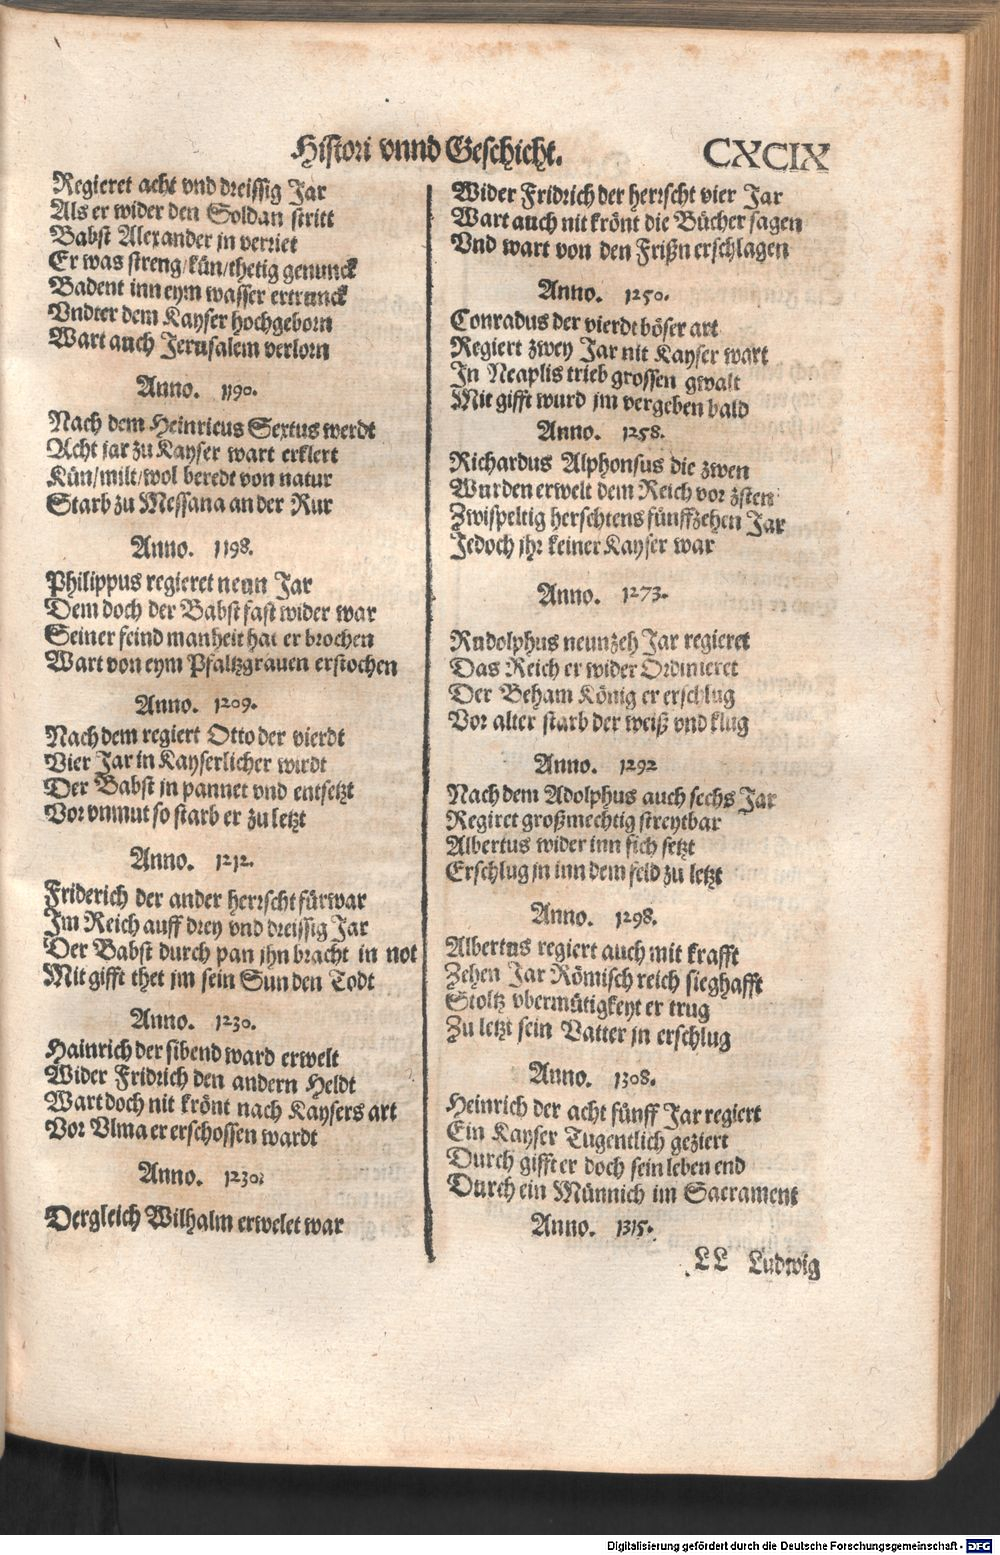 Histori vnnd Geschicht. CXCIX
Regieret acht vnd dreissig Jar
Als er wider den Soldan stritt
Babst Alexander jn verriet
Er was streng/kün/thetig genunck
Badent inn eym wasser ertrunck
Vndter dem Kayser hochgeborn
Wart auch Jerusalem verlorn
Anno. 1190.
Nach dem Heinricus Sextus werdt
Acht jar zu Kayser wart erklert
Kün/milt/wol beredt von natur
Starb zu Messana an der Rur
Anno. 1198.
Philippus regieret neun Jar
Dem doch der Babst fast wider war
Seiner feind manheit hat er brochen
Wart von eym Pfaltzgrauen erstochen
Anno. 1209.
Nach dem regiert Otto der vierdt
Vier Jar in Kayserlicher wirdt
Der Babst jn pannet vnd entsetzt
Vor vnmut so starb er zu letzt
Anno. 1212.
Friderich der ander herrscht fürwar
Im Reich auff drey vnd dreissig Jar
Der Babst durch pan jhn bracht in not
Mit gifft thet jm sein Sun den Todt
Anno. 1230.
Hainrich der sibend ward erwelt
Wider Fridrich den andern Heldt
Wart doch nit krönt nach Kaysers art
Vor Vlma er erschossen wardt
Anno. 1230.
Dergleich Wilhalm erwelet war
Wider Fridrich der herrscht vier Jar
Wart auch nit krönt die Bücher sagen
Vnd wart von den Frißn erschlagen
Anno. 1250.
Conradus der vierdt böser art
Regiert zwey Jar nit Kayser wart
In Neaplis trieb grossen gwalt
Mit gifft wurd jm vergeben bald
Anno. 1258.
Richardus Alphonsus die zwen
Wurden erwelt dem Reich vor zsten
Zwispeltig herschtens fünffzehen Jar
Jedoch jhr keiner Kayser war
Anno. 1273.
Rudolphus neunzeh Jar regieret
Das Reich er wider Ordinieret
Der Beham König er erschlug
Vor alter starb der weiß vnd klug
Anno. 1292
Nach dem Adolphus auch sechs Jar
Regiret großmechtig streytbar
Albertus wider inn sich setzt
Erschlug jn inn dem feld zu letzt
Anno. 1298.
Albertus regiert auch mit krafft
Zehen Jar Römisch reich sieghafft
Stoltz vbermütigkeyt er trug
Zu letzt sein Vatter jn erschlug
Anno. 1308.
Heinrich der acht fünff Jar regiert
Ein Kayser Tugentlich geziert
Durch gifft er doch sein leben end
Durch ein Münnich im Sacrament
Anno. 1315.
LL Ludwig
Digitalisierung gefördert durch die Deutsche Forschungsgemeinschaft - DFG